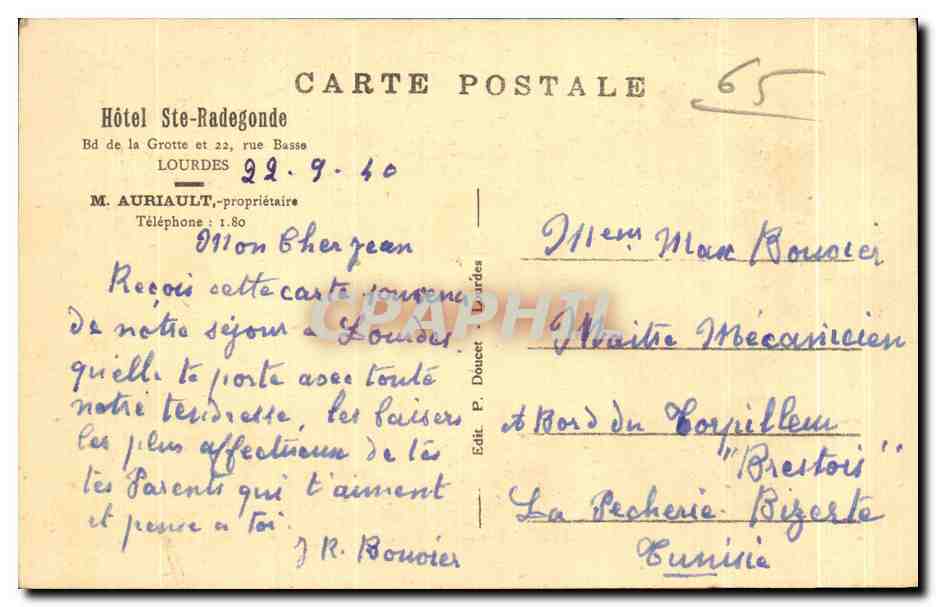 CARTE POSTALE
65
Hôtel Ste-Radegonde
Bd de la Grotte et 22, rue Basse
LOURDES 22.9.40
M. AURIAULT,-propriétaire
Téléphone : 1.80
Mon Cher Jean
Reçois cette carte souvenir
de notre séjour a Lourdes
qu'elle te porte avec toute
notre tendresse, les baisers
les plus affectueux de tes
tes Parents qui t'aiment
et pense a toi.
J R. Bouvier
Edit P. Doucet - Lourdes
CPAPHIL
Max Bouvier
Maitre Mécanicien
A Bord du Torpilleur
"Brestois"
La Pecherie. Bizerte
Tunisie